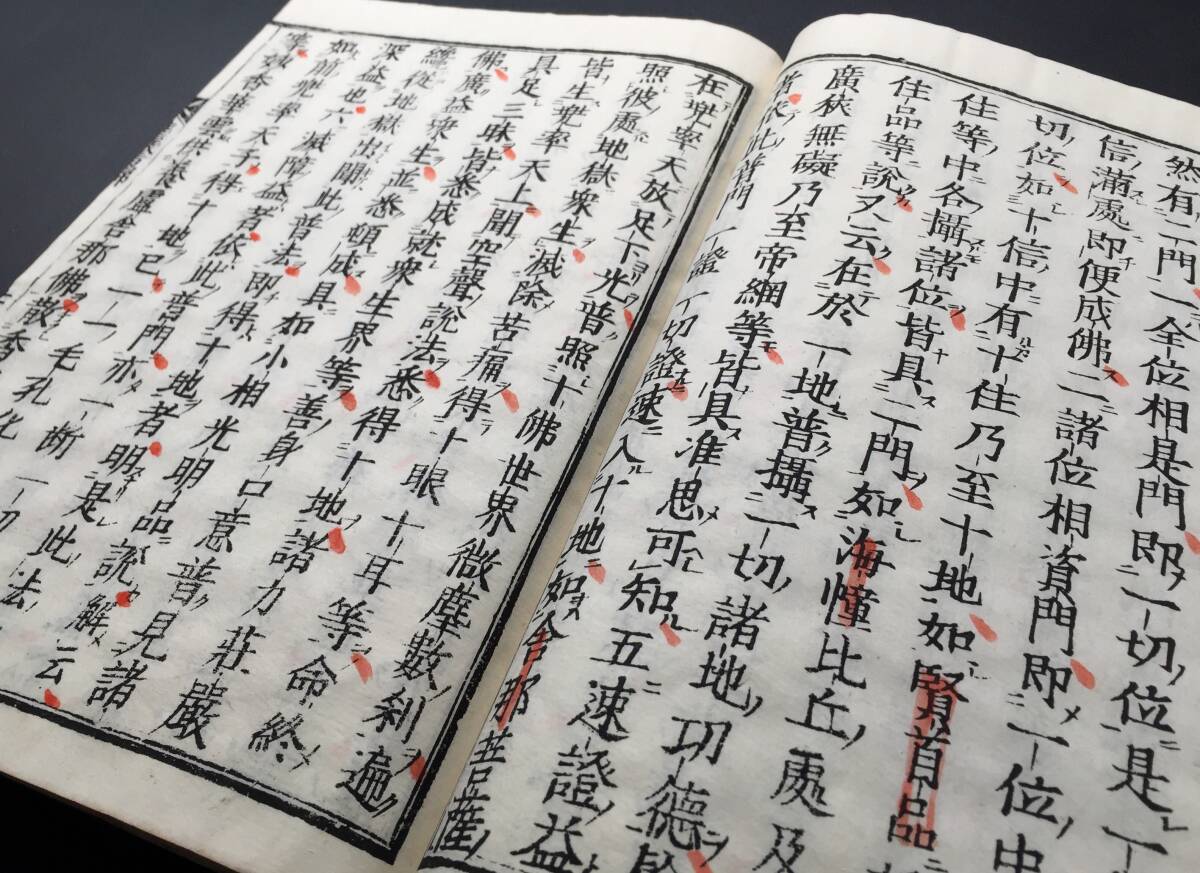 然有二門一全位相是門即一切位是一
信滿處即便成佛二諸位相資門即一位中
切位如十信中有十住乃至十地如賢首品
住等中各攝諸位皆具二門如海幢比丘處及
住品等說又云在於一地普攝一切諸地功德
廣狹無礙乃至帝網等皆具准思可知五速證益
者依此普門一證一切證速入十地如舍那菩薩
在兜率天放足下光普照十佛世界微塵數刹遍
照彼處地獄衆生滅除苦痛得十眼十耳等命終
皆生兜率天上聞空聲說法悉得十地諸力莊嚴
具足三昧皆悉成就衆生界等善身口意普見諸
佛廣益衆生並悉頓成具如小相光明品說
纔從地獄出聞此普法即得十地者明是此法
深益也六滅障益者依此普門一斷一切
如前兜率天子得十地已一一毛孔化
等妙香華雲供養盧舍那佛散香